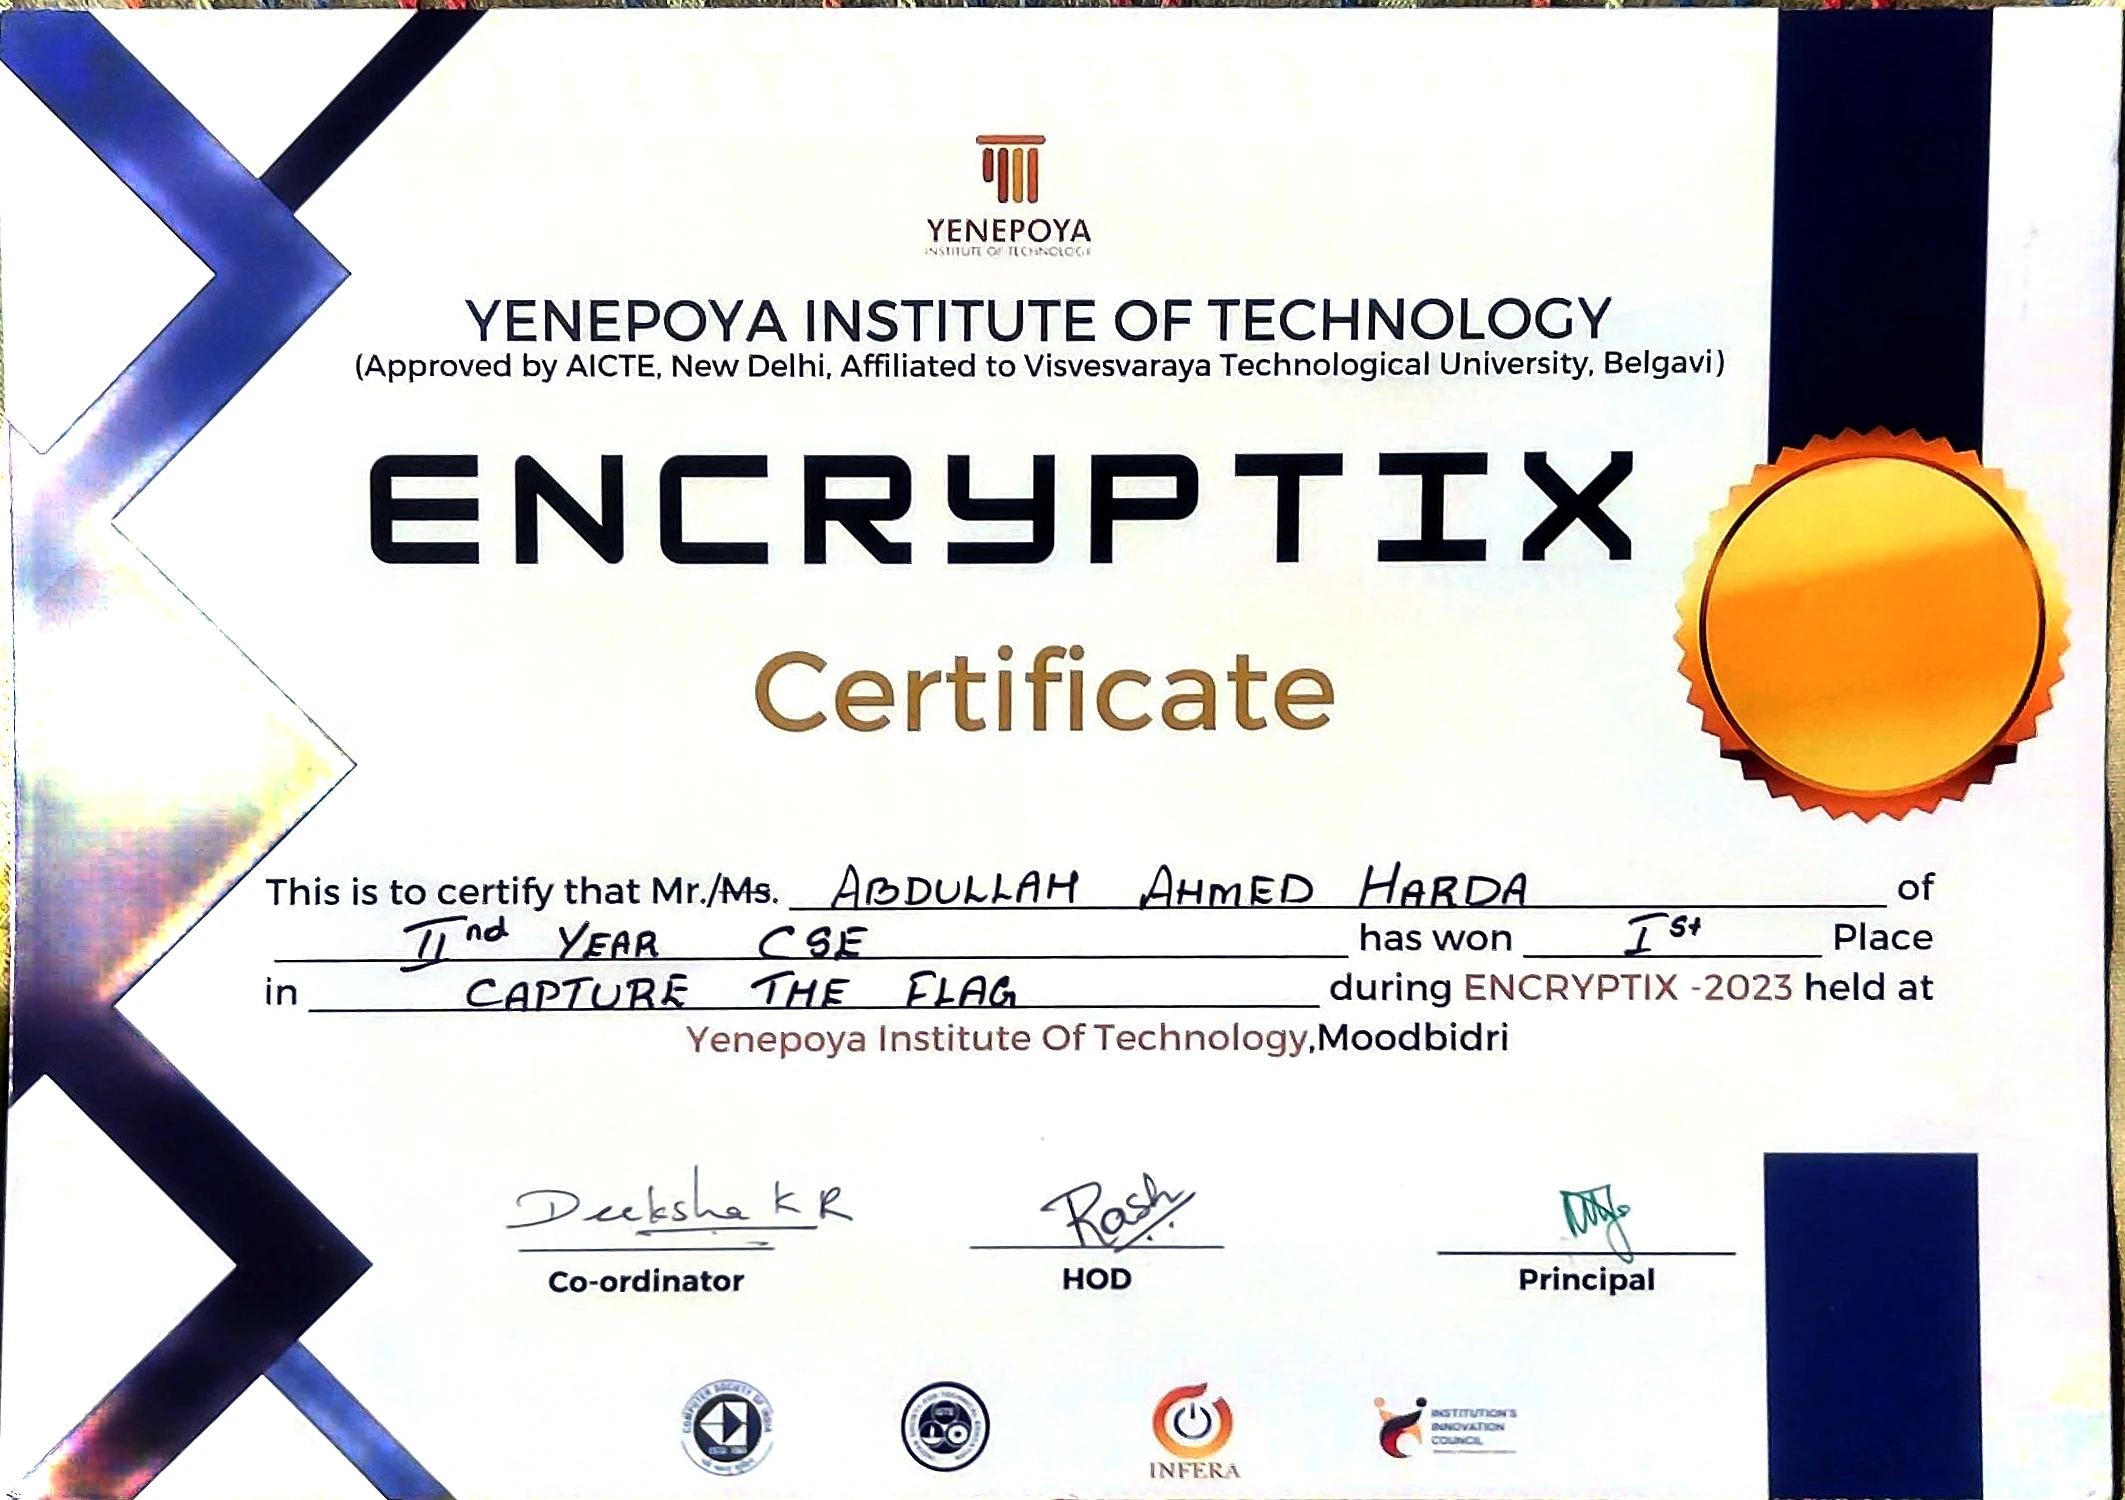 YENEPOYA
INSTITUTE OF TECHNOLOGY
YENEPOYA INSTITUTE OF TECHNOLOGY
(Approved by AICTE, New Delhi, Affiliated to Visvesvaraya Technological University, Belgavi)
ENCRYPTIX
Certificate
This is to certify that Mr./Ms. ABDULLAH AHMED HARDA of
IInd YEAR CSE has won Ist Place
in CAPTURE THE FLAG during ENCRYPTIX -2023 held at
Yenepoya Institute Of Technology,Moodbidri
Deeksha K R Rash
Co-ordinator HOD Principal
COMPUTER SOCIETY OF INDIA
INFERA
INSTITUTION'S
INNOVATION
COUNCIL